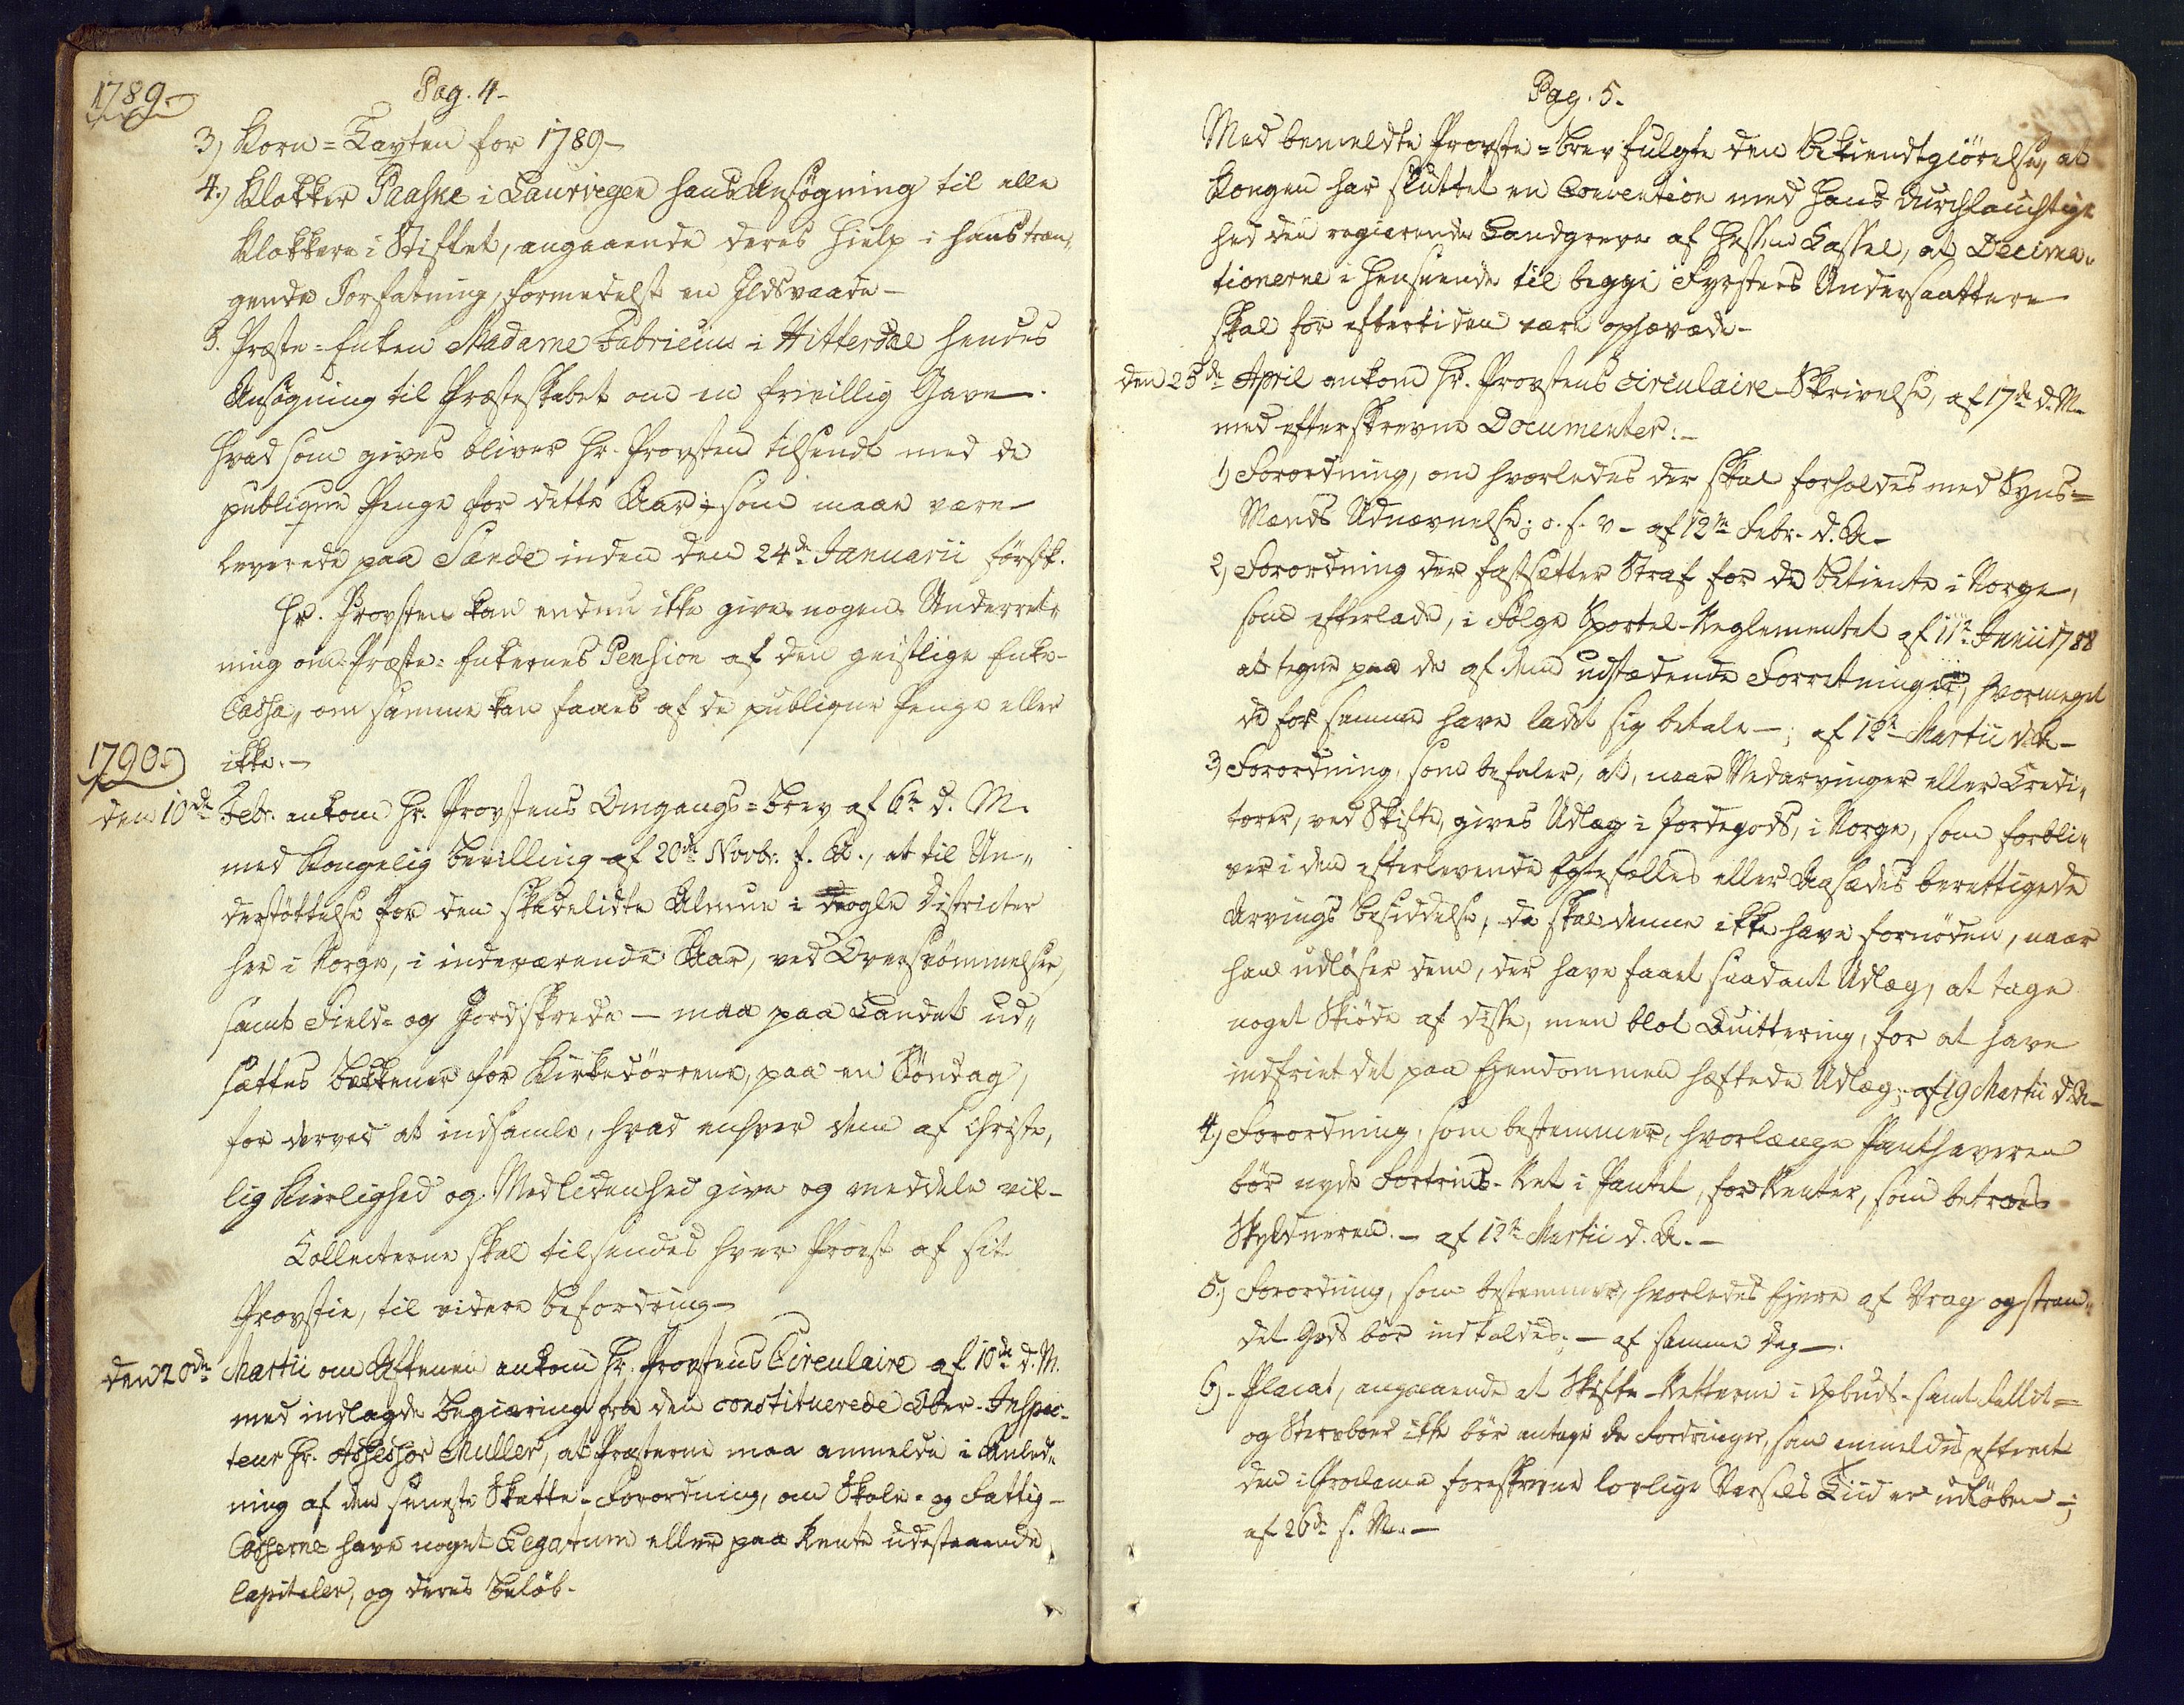 1789
Pag. 4-
3) Korn=Taxten for 1789-
4.) Klokker Paaske i Laurvigen hans Ansøgning til alle
Klokkere i Stiftet, angaaende deres Hielp i hans træn,,
gende Forfatning, formedelst en Ildsvaade-
5. Præste=Enken Madame Fabricius i Hitterdal hendes
Ansøgning til Præsteskabet om en frivillig Gave-.
Hvad som gives bliver Hr. Provsten tilsendt med de
publique Penge for dette Aar; som maae være
leverede paa Sande inden den 24de Januarii førstk.
Hr. Provsten kan endnu ikke give nogen Underret-
ning om Præste=Enkernes Pension af den geistlige Enke-
Cassa, om samme kan faaes af de publique Penge eller
ikke.-
1790.
den 10de Febr. ankom Hr. Provstens Omgangs=Brev af 6te d. M.
med Kongelig Bevilling af 20de Novbr. f. A., at til Un,,
derstøttelse for den skadelidte Almue i nogle Districter
her i Norge, i indeværende Aar, ved Oversvømmelser,
samt Field= og Jordskrede - maa paa Landet ud,,
sættes Bekkener for Kirkedørrene, paa en Søndag,
for derved at indsamle, hvad enhver dem af Christe,
lig Kierlighed og Medlidenhed give og meddele vil-
Collecterne skal tilsendes hver Provst af sit
Provstie, til videre Befordring-
den 20de Martii om Aftenen ankom Hr. Provstens Circulaire af 10de d. M.
med indlagde Begiæring fra den constituerede Ober-Inspec-
teur Hr. Assessor Muller, at Præsterne maa anmelde i Anled,,
ning af den seneste Skatte-Forordning, om Skole- og Fattig-
Casserne have noget Legatum eller paa Rente udestaaende
Capitaler, og deres Beløb.
Pag. 5.
Med bemeldte Provste=Brev fulgte den Bekiendtgiørelse, at
Kongen har sluttet en Convention med Hans Durchlauchtig
hed den regierende Landgreve af Hessen Cassel, at Decima,,
tionerne i Henseende til begge Fyrsters Undersaattere
skal for eftertiden være ophævede-
den 25de April ankom Hr. Provstens Circulaire-Skrivelse, af 17de d. M.
med efterskrevne Documenter:-
1) Forordning, om hvorledes der skal forholdes med Syns=
Mænds Udnævnelse; o. s. v- af 12te Febr. d. A-
2) Forordning der fastsetter Straf for de Betiente i Norge,
som efterlade, i Følge Sportel-Reglementet af 11te Junii 1788
at tegne paa de af dem udstædende Forretninger, hvormeget
de for samme have ladet sig betale-; af 12te Martii d. A-
3) Forordning, som befaler, at, naar Medarvinger eller Credi,,
torer, ved Skifte, gives Udlæg i Jordegods, i Norge, som forbli,,
ver i den efterlevende Egtefælles eller Aasædes berettigede
Arvings Besiddelse, da skal denne ikke have fornøden, naar
han udløser dem, der have faaet saadant Udlæg, at tage
noget Skiøde af disse, men blot Quittering, for at have
indfriet det paa Eyendommen hæftede Udlæg;- af 19 Martii d. A-
4) Forordning, som bestemmer, hvorlænge Panthaveren
bør nyde Fortrins-Ret i Pantet, for Renter, som betroes
Skyldneren.- af 12te Martii d. A.-
5.) Forordning, som bestemmer, hvorledes Eyere af Vrag og stran,,
det Gods bør indkaldes;- af samme Dag-.
6)- Placat, angaaende at Skifte-Retterne i Opbuds- samt Fallit=
og Sterboer ikke bør antage de Fordringer, som anmeldes efterat
den i Proclama foreskrevne lovlige Varsels Tiid er udløben-;
af 26de s. M.-